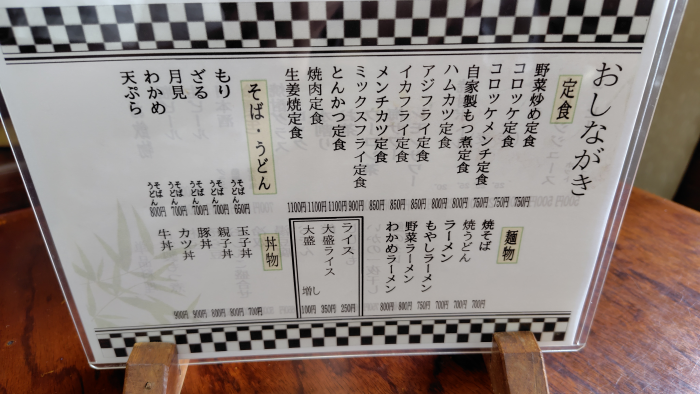 おしながき
定食
野菜炒め定食 750円
コロッケ定食 750円
コロッケメンチ定食 750円
自家製もつ煮定食 800円
ハムカツ定食 800円
アジフライ定食 850円
イカフライ定食 850円
メンチカツ定食 850円
ミックスフライ定食 900円
とんかつ定食 1100円
焼肉定食 1100円
生姜焼定食 1100円
そば・うどん
もり そばうどん 650円
ざる そばうどん 700円
月見 そばうどん 700円
わかめ そばうどん 700円
天ぷら そばうどん 800円
麺物
焼そば 700円
焼うどん 700円
ラーメン 700円
もやしラーメン 750円
野菜ラーメン 800円
わかめラーメン 800円
ライス 250円
大盛ライス 350円
大盛 増し 100円
丼物
玉子丼 700円
親子丼 800円
豚丼 800円
カツ丼 900円
牛丼 900円